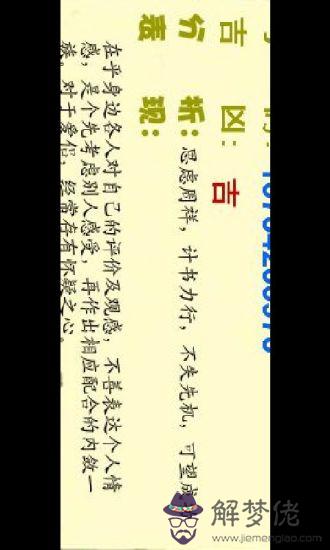 吉 凶: 吉
分 析: 思虑周祥，计书力行，不失先机，可望成
表 现:
在乎身边各人对自己的评价及观感，不善表达个人情
感，是个先考虑别人感受，再作出相应配合的内敛一
族。对于爱侣，经常存有怀疑之心。
解梦佬